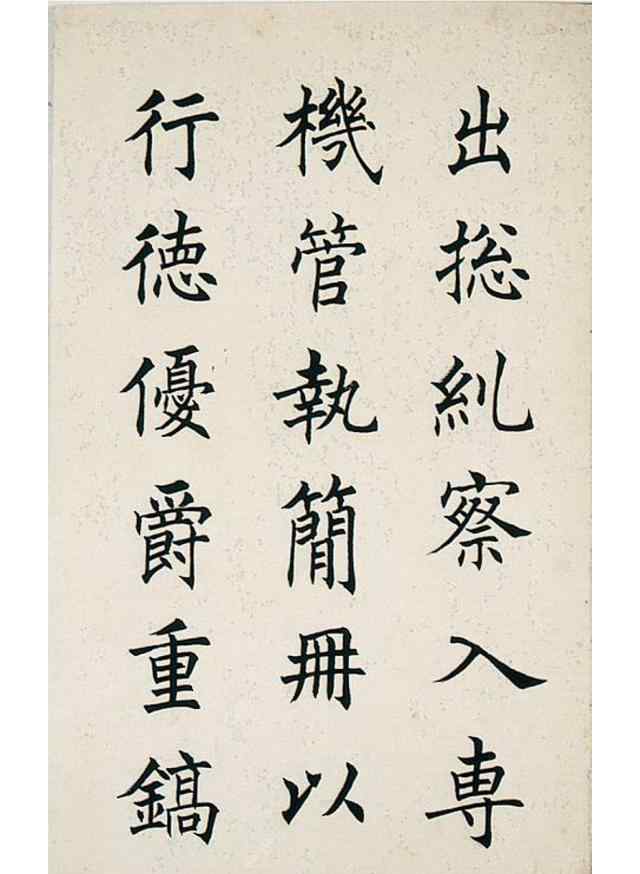 出捴糺察入専
機管執簡冊以
行徳優爵重鎬